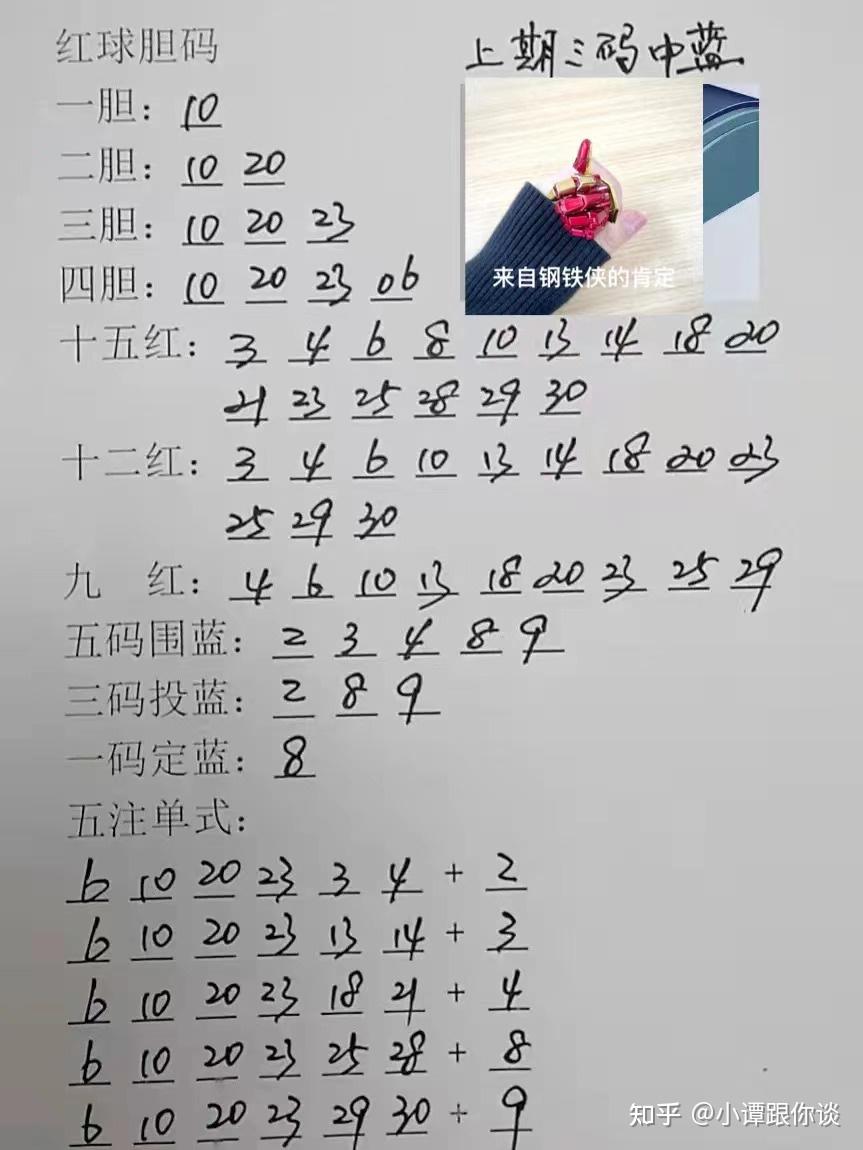 红球胆码
上期三码中蓝
一胆：10
二胆：10 20
三胆：10 20 23
四胆：10 20 23 06
来自钢铁侠的肯定
十五红：3 4 6 8 10 13 14 18 20
21 23 25 28 29 30
十二红：3 4 6 10 13 14 18 20 23
25 29 30
九 红：4 6 10 13 18 20 23 25 29
五码围蓝：2 3 4 8 9
三码投蓝：2 8 9
一码定蓝：8
五注单式：
6 10 20 23 3 4 + 2
6 10 20 23 13 14 + 3
6 10 20 23 18 21 + 4
6 10 20 23 25 28 + 8
6 10 20 23 29 30 + 9
知乎 @小谭跟你谈